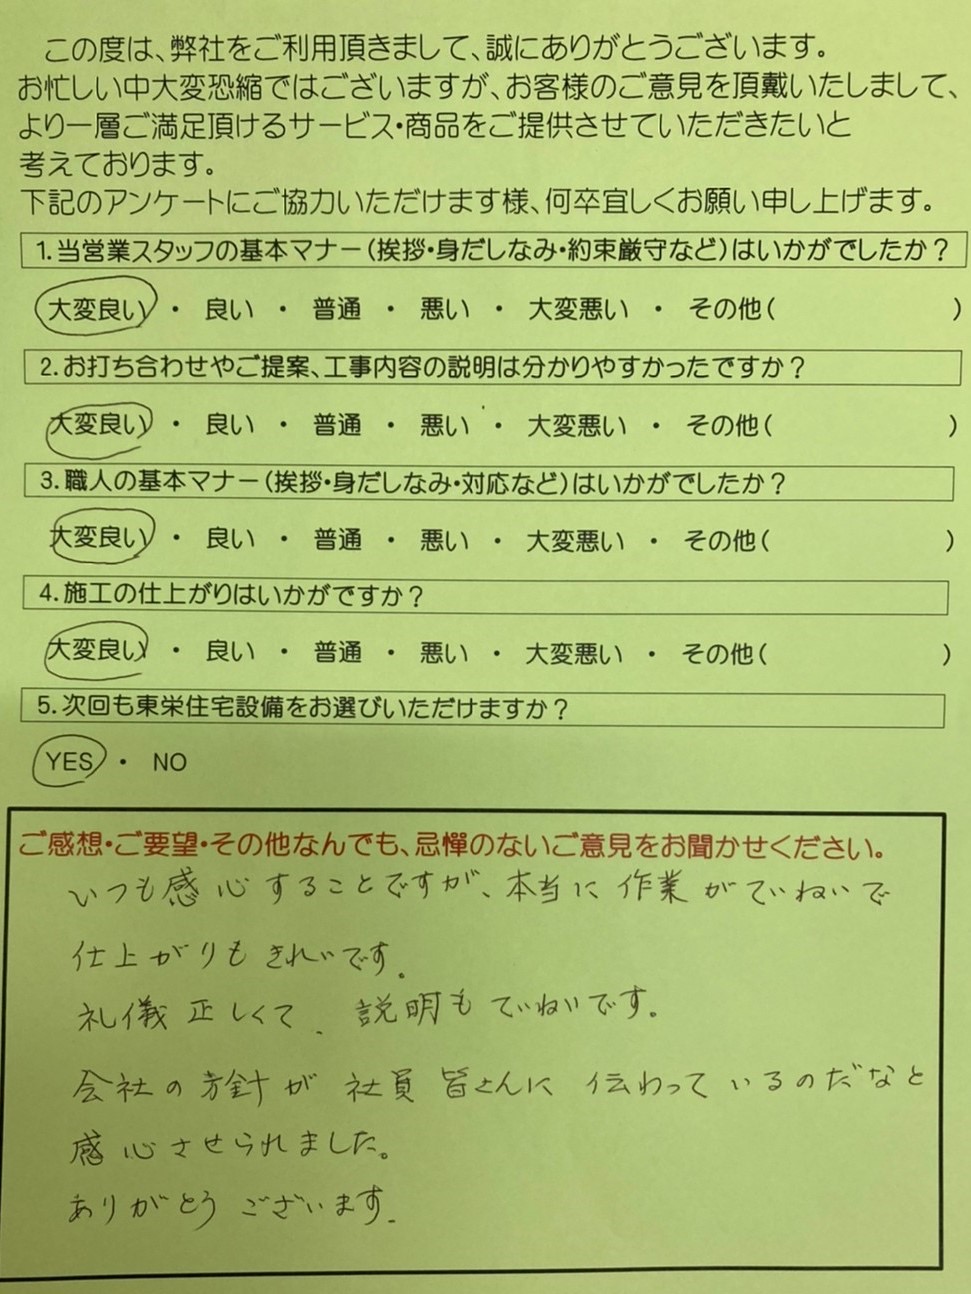 この度は、弊社をご利用頂きまして、誠にありがとうございます。
お忙しい中大変恐縮ではございますが、お客様のご意見を頂戴いたしまして、
より一層ご満足頂けるサービス・商品をご提供させていただきたいと
考えております。
下記のアンケートにご協力いただけます様、何卒宜しくお願い申し上げます。
1.当営業スタッフの基本マナー(挨拶・身だしなみ・約束厳守など)はいかがでしたか？
大変良い ・ 良い ・ 普通 ・ 悪い ・ 大変悪い ・ その他( )
2.お打ち合わせやご提案、工事内容の説明は分かりやすかったですか？
大変良い ・ 良い ・ 普通 ・ 悪い ・ 大変悪い ・ その他( )
3.職人の基本マナー(挨拶・身だしなみ・対応など)はいかがでしたか？
大変良い ・ 良い ・ 普通 ・ 悪い ・ 大変悪い ・ その他( )
4.施工の仕上がりはいかがですか？
大変良い ・ 良い ・ 普通 ・ 悪い ・ 大変悪い ・ その他( )
5.次回も東栄住宅設備をお選びいただけますか？
YES ・ NO
ご感想・ご要望・その他なんでも、忌憚のないご意見をお聞かせください。
いつも感心することですが、本当に作業がていねいで
仕上がりもきれいです。
礼儀正しくて、説明もていねいです。
会社の方針が社員皆さんに伝わっているのだなと
感心させられました。
ありがとうございます。